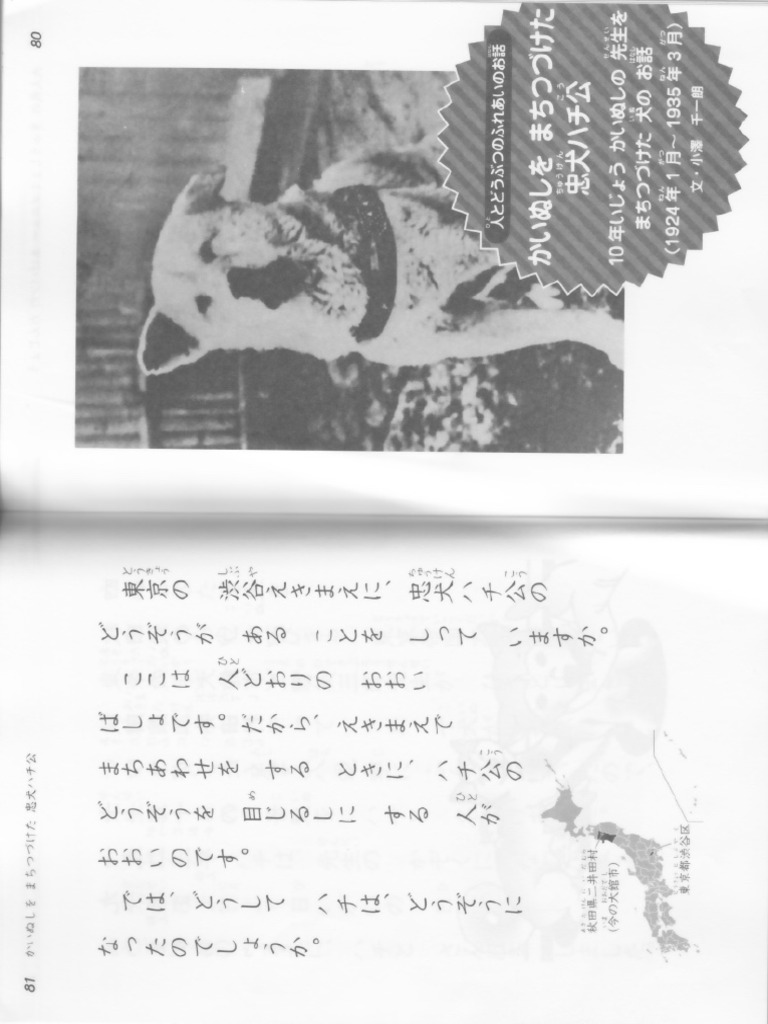 人とどうぶつのふれあいのお話
かいぬしを まちつづけた
忠犬ハチ公
10年いじょう かいぬしの 先生を
まちつづけた 犬の お話
(1924年1月〜1935年3月)
文・小澤 千一朗
80
東京の 渋谷えきまえに、忠犬ハチ公の
どうぞうが ある ことを しって いますか。
ここは 人どおりの おおい
ばしょです。だから、えきまえで
まちあわせを する ときに、ハチ公の
どうぞうを 目じるしに する 人が
おおいのです。
では、どうして ハチは、どうぞうに
なったのでしょうか。
秋田県二井田村
(今の大館市)
東京都渋谷区
81 かいぬしを まちつづけた 忠犬ハチ公